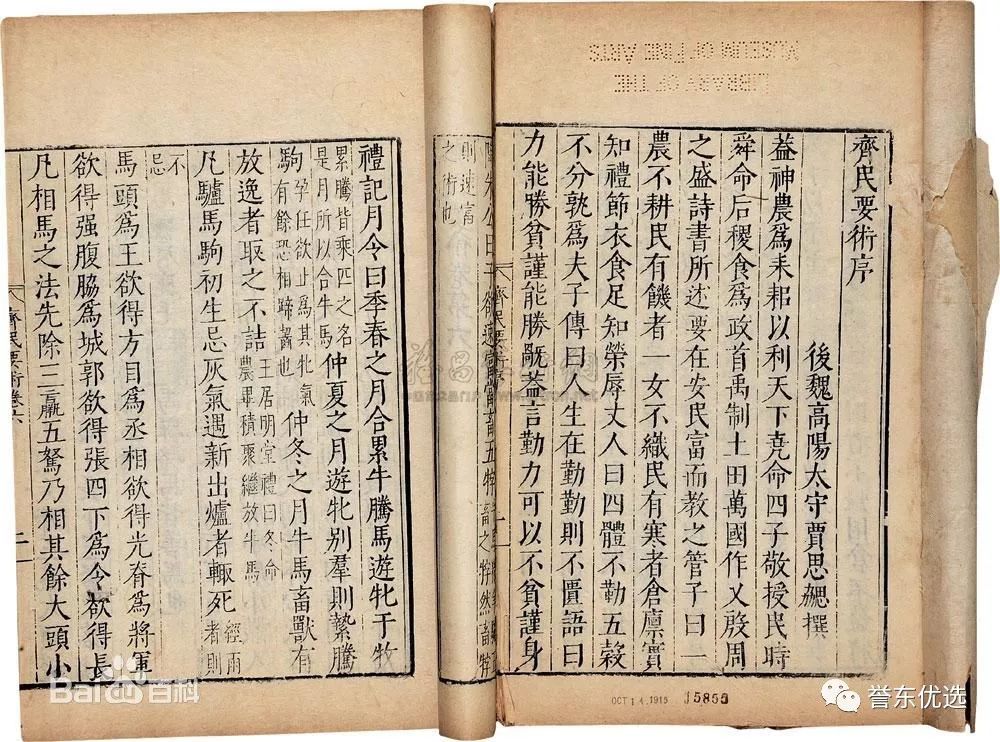 MUSEUM OF FINE ARTS
LIBRARY OF THE
齊民要術序
後魏高陽太守賈思勰撰
葢神農爲耒耜以利天下堯命四子敬授民時
舜命后稷食爲政首禹制土田萬國作乂殷周
之盛詩書所述要在安民富而教之管子曰一
農不耕民有饑者一女不織民有寒者倉廩實
知禮節衣食足知榮辱丈人曰四體不勤五穀
不分孰爲夫子傳曰人生在勤勤則不匱語曰
力能勝貧謹能勝旤葢言勤力可以不貧謹身
齊民要術序 一
畜之牸然畜牸
則速富
之術也
禮記月令曰季春之月合累牛騰馬遊牝于牧
累騰皆乘匹之名是月所以合牛馬仲夏之月遊牝别羣則縶騰
駒孕任欲止爲其牝氣有餘恐相蹄齧也仲冬之月牛馬畜獸有
放逸者取之不詰王居明堂禮曰冬命農畢積聚繼放牛馬
凡驢馬駒初生忌灰氣遇新出爐者輙死經雨者則
不忌
馬頭爲王欲得方目爲丞相欲得光脊爲將軍
欲得强腹脇爲城郭欲得張四下爲令欲得長
凡相馬之法先除三羸五駑乃相其餘大頭小
齊民要術卷六 二
OCT 14.1915 15855
Bai百科
誉东优选